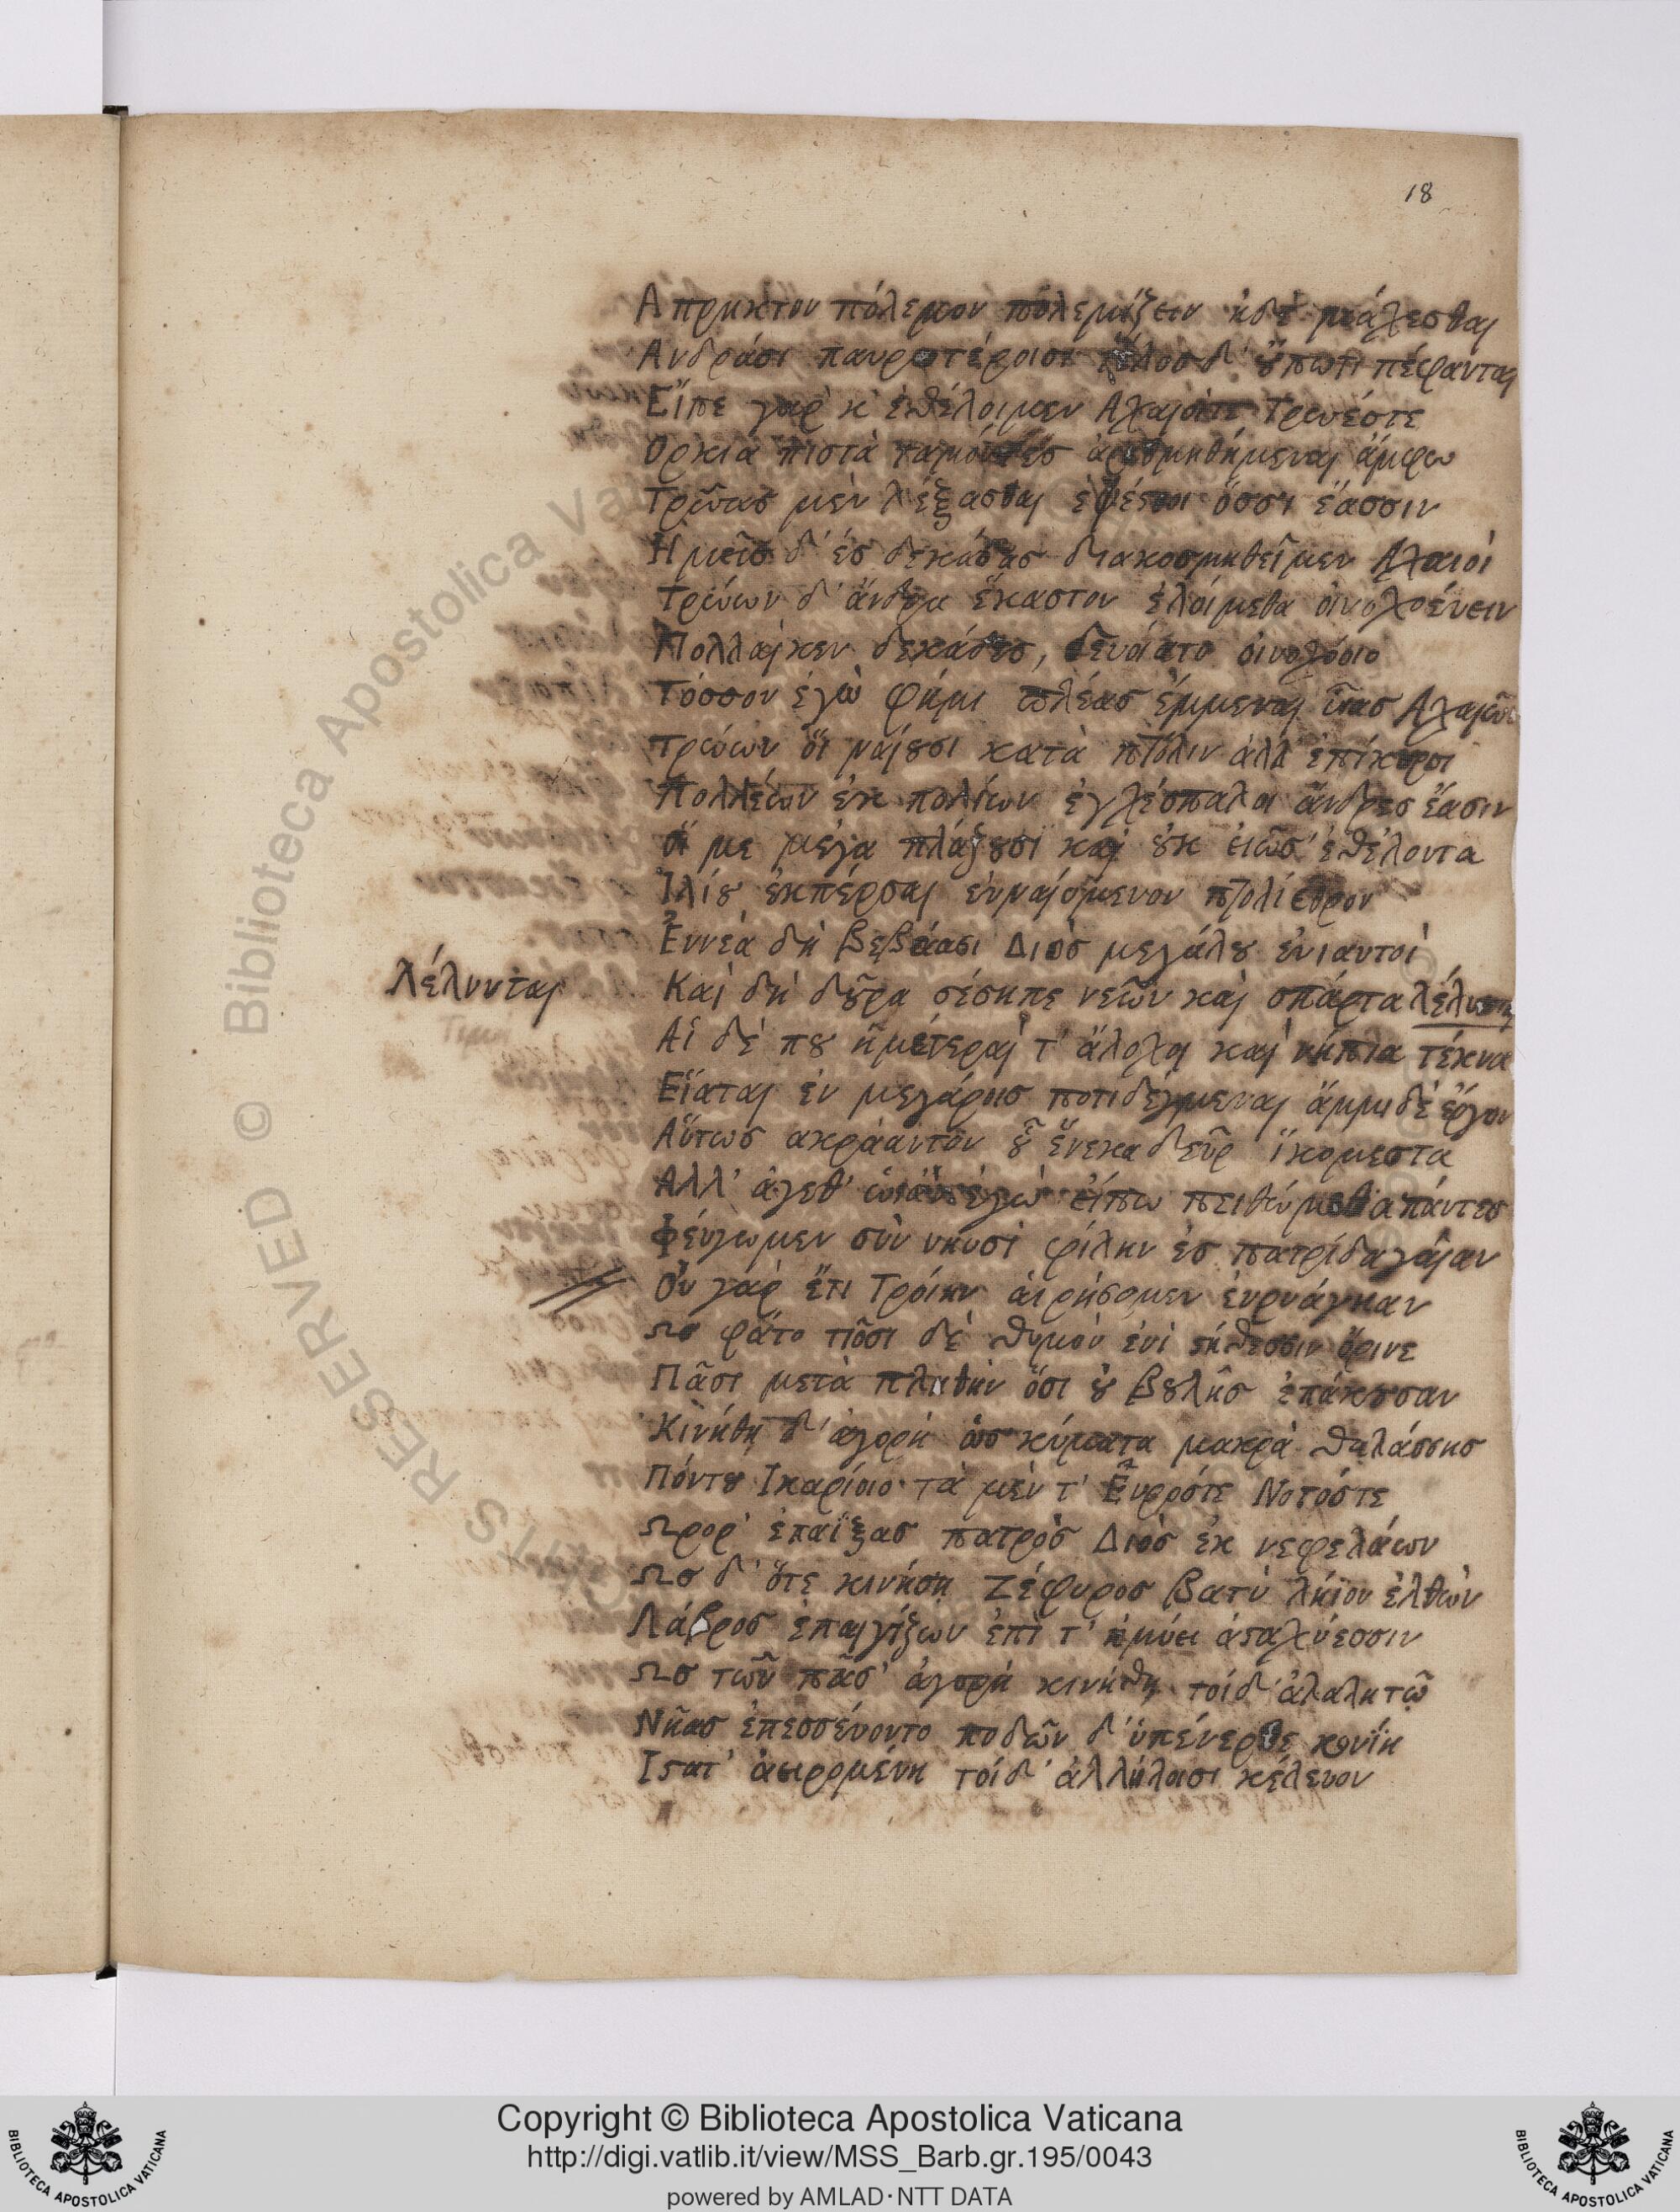 18
Απρηκτον πόλεμον πολεμίζειν ἠδὲ μάχεσθαι
Ανδράσι παυροτέροισι τέλοσ δ' οὔπωτι πέφανται
Εἴπε γαρ κ' ἐθέλοιμεν Αχαιοίτε Τρωέστε
Ορκια πιστὰ ταμόντεσ ἀριθμηθήμεναι ἄμφω
Τρῶασ μὲν λέξασθαι ἐφέστιοι ὅσσοι ἔασσιν
Ημεῖσ δ' ἐσ δεκάδασ διακοσμηθεῖμεν Αχαιοὶ
Τρώων δ' ἄνδρα ἕκαστον ἑλοίμεθα οἰνοχοεύειν
Πολλαίκεν δεκάδεσ, δευοίατο οἰνοχόοιο
Τόσσον ἐγὼ φήμι πλέασ ἔμμεναι υἷασ Αχαιῶν
Τρώων οἳ ναίουσι κατὰ πτόλιν ἀλλ' ἐπίκουροι
Πολλέων ἐκ πολίων ἐγχέσπαλοι ἄνδρεσ ἔασιν
οἵ με μέγα πλάζουσι και οὐκ εἰῶσ' ἐθέλοντα
Ιλίου ἐκπέρσαι εὐναιόμενον πτολίεθρον
Εννέα δὴ βεβάασι Διὸσ μεγάλου ἐνιαυτοὶ
λέλυνται
Καὶ δὴ δοῦρα σέσηπε νεῶν και σπάρτα λέλυνται
Αἱ δὲ που ἡμέτεραι τ' ἄλοχοι και νήπια τέκνα
Εἵαται ἐν μεγάροισ ποτιδέγμεναι ἄμμι δὲ ἔργον
Αὔτωσ ακράαντον οὗ ἕνεκα δεῦρ ἵκομεστα
Αλλ' ἄγεθ' ὡσ ἂν ἐγὼ εἴπω πειθώμεθα πάντεσ
Φεύγωμεν σὺν νηυσὶ φίλην ἐσ πατρίδα γαῖαν
Οὐ γὰρ ἔτι Τροίην αἱρήσομεν εὐρυάγυιαν
Ωσ φάτο τοῖσι δὲ θυμὸν ἐνὶ στήθεσσιν ὄρινε
Πᾶσι μετὰ πληθὺν ὅσοι οὐ βουλῆσ ἐπάκουσαν
Κινήθη δ' ἀγορὴ ὡσ κύματα μακρὰ θαλάσσησ
Πόντου Ικαρίοιο τὰ μέν τ' Εὐρόστε Νοτόστε
Ωρορ' ἐπαΐξασ πατρὸσ Διὸσ ἐκ νεφελάων
Ωσ δ' ὅτε κινήση Ζέφυροσ βατὺ λήϊον ἐλθὼν
Λάβροσ ἐπαιγίζων ἐπὶ τ' ἠμύει ἀσταχύεσσιν
Ωσ τῶν πᾶσ' ἀγορὴ κινήθη τοὶ δ' ἀλαλητῶ
Νῆασ ἐπεσσεύοντο ποδῶν δ' ὑπένερθε κονίη
Ιστατ' ἀειρομένη τοὶ δ' ἀλλήλοισι κέλευον
© Biblioteca Apostolica Vaticana
RIGHTS RESERVED
Copyright © Biblioteca Apostolica Vaticana
http://digi.vatlib.it/view/MSS_Barb.gr.195/0043
powered by AMLAD·NTT DATA
BIBLIOTECA APOSTOLICA VATICANA
BIBLIOTECA APOSTOLICA VATICANA